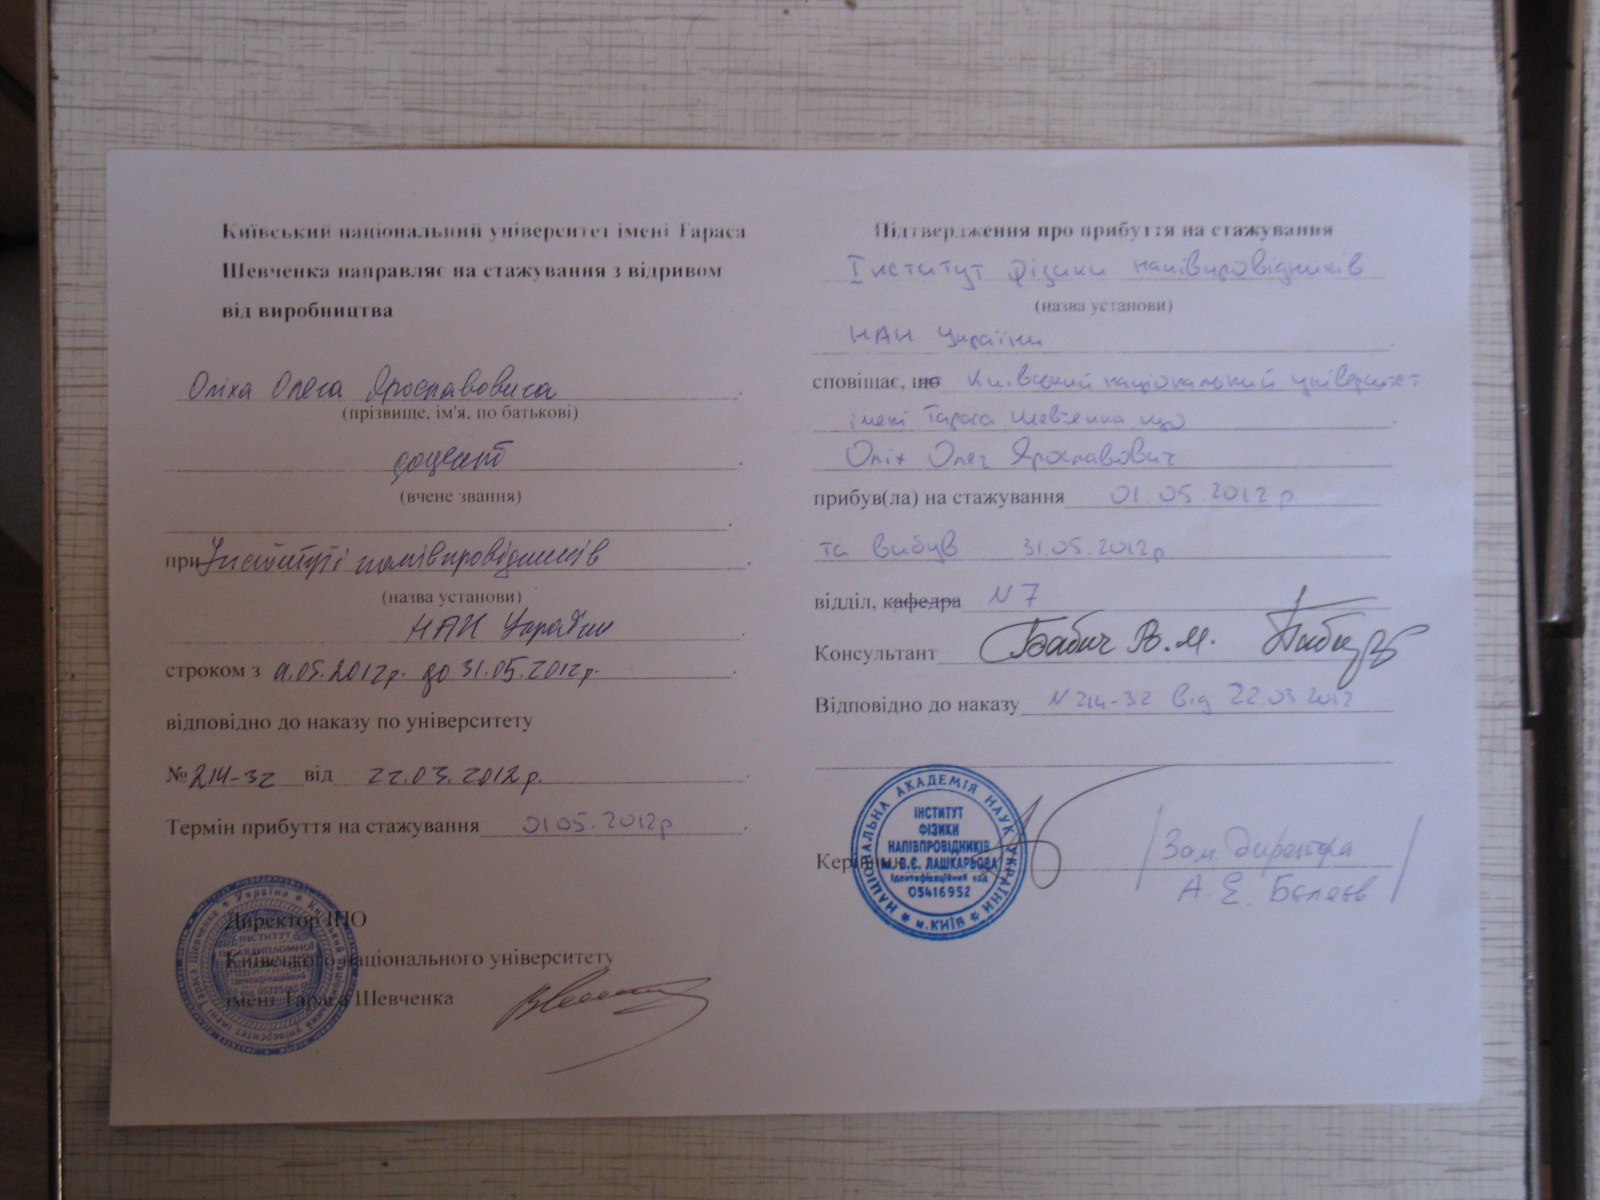 Київський національний університет імені Тараса
Шевченка направляє на стажування з відривом
від виробництва
Оліха Олега Ярославовича
(прізвище, ім'я, по батькові)
доцент
(вчене звання)
при Інституті напівпровідників
(назва установи)
НАН України
строком з 01.05.2012р. до 31.05.2012р.
відповідно до наказу по університету
№ 214-32 від 22.03.2012р.
Термін прибуття на стажування 01 05. 2012р
Директор ІПО
Київського національного університету
імені Тараса Шевченка
Підтвердження про прибуття на стажування
Інститут фізики напівпровідників
(назва установи)
НАН України
сповіщає, що Київський національний університет
імені Тараса Шевченка що
Оліх Олег Ярославович
прибув(ла) на стажування 01 05 2012 р
та вибув 31.05.2012р
відділ, кафедра N 7
Консультант Бабич В.М.
Відповідно до наказу N 214-32 від 22 03 2012
НАЦІОНАЛЬНА АКАДЕМІЯ НАУК УКРАЇНИ
ІНСТИТУТ
ФІЗИКИ
НАПІВПРОВІДНИКІВ
ім. В.Є. ЛАШКАРЬОВА
Ідентифікаційний код
05416952
м. КИЇВ
Керівник
Зам. директора
А. Е. Бєляєв